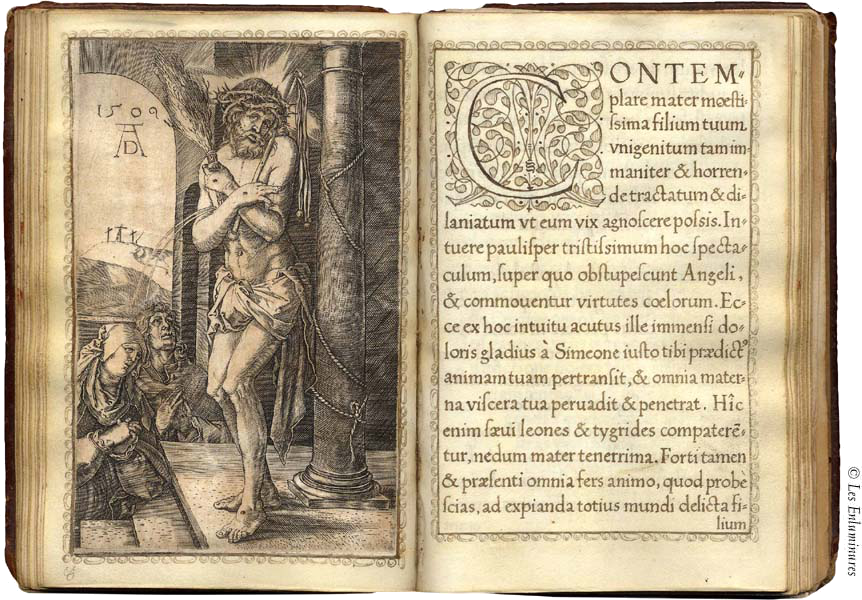 1509
AD
CONTEM-
plare mater mœsti-
ssima filium tuum
vnigenitum tam im-
maniter & horren-
de tractatum & di-
laniatum vt eum vix agnoscere possis. In-
tuere paulisper tristissimum hoc specta-
culum, super quo obstupescunt Angeli,
& commouentur virtutes cœlorum. Ec-
ce ex hoc intuitu acutus ille immensi do-
loris gladius à Simeone iusto tibi prædictꝰ
animam tuam pertransit, & omnia mater-
na viscera tua peruadit & penetrat. Hîc
enim sæui leones & tygrides compaterẽ-
tur, nedum mater tenerrima. Forti tamen
& præsenti omnia fers animo, quod probè
scias, ad expianda totius mundi delicta fi-
lium
© Les Enluminures